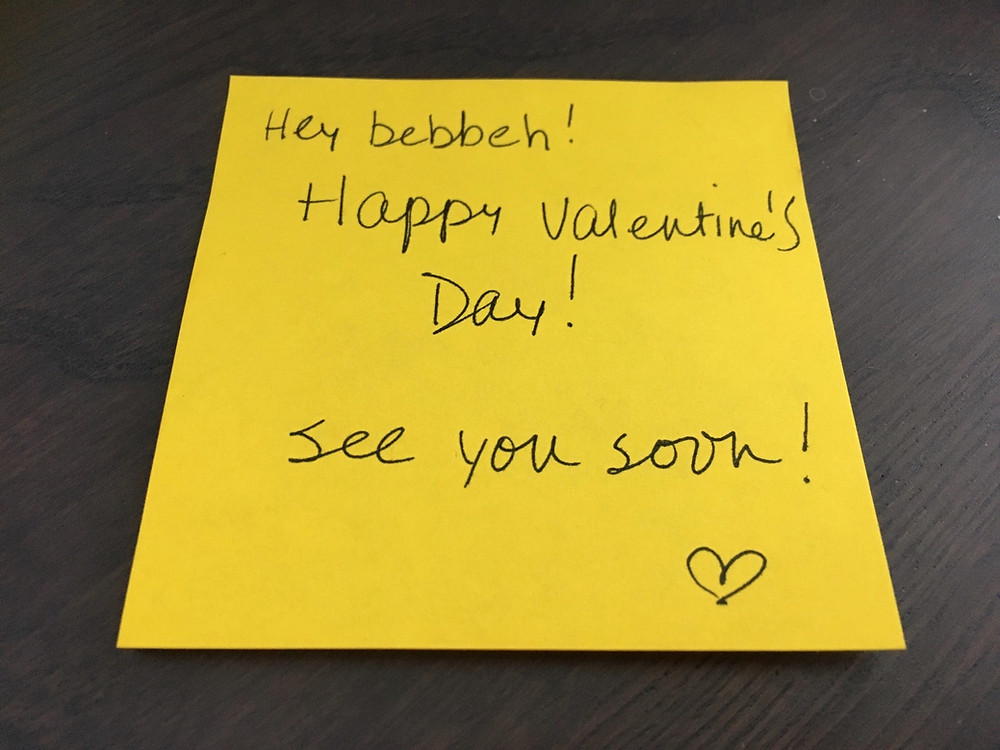 Hey bebbeh!
Happy Valentine's
Day!
See you soon!